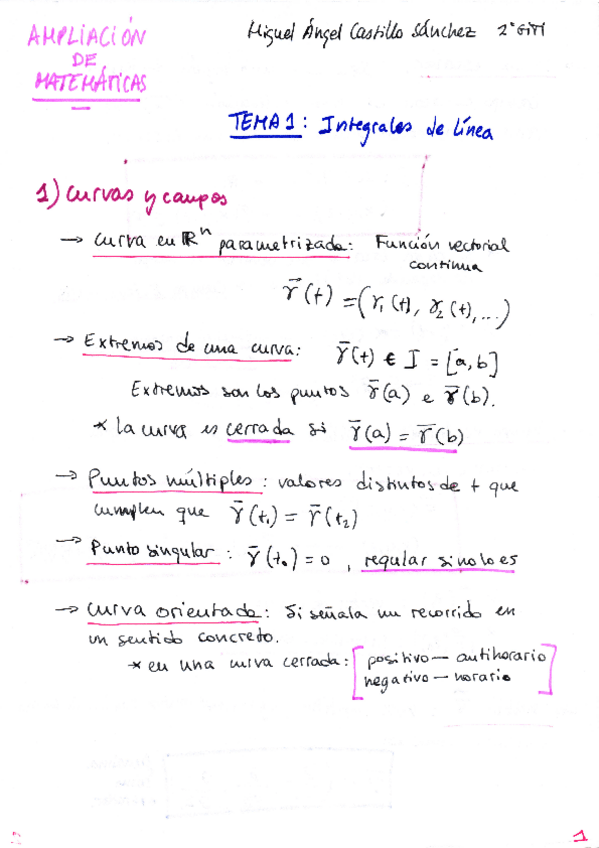 AMPLIACIÓN
DE
MATEMÁTICAS
Miguel Ángel Castillo Sánchez 2º GITI
TEMA 1: Integrales de línea
1) Curvas y campos
→ Curva en ℝⁿ parametrizada: Función vectorial
continua
r̄(t) = (r₁(t), r₂(t), ...)
→ Extremos de una curva: r̄(t) ∈ I = [a, b]
Extremos son los puntos r̄(a) e r̄(b).
* La curva es cerrada si r̄(a) = r̄(b)
→ Puntos múltiples: valores distintos de t que
cumplen que r̄(t₁) = r̄(t₂)
→ Punto singular: r̄(t₀) = 0, regular si no lo es
→ Curva orientada: Si señala un recorrido en
un sentido concreto.
* en una curva cerrada: [positivo — antihorario
negativo — horario]
1